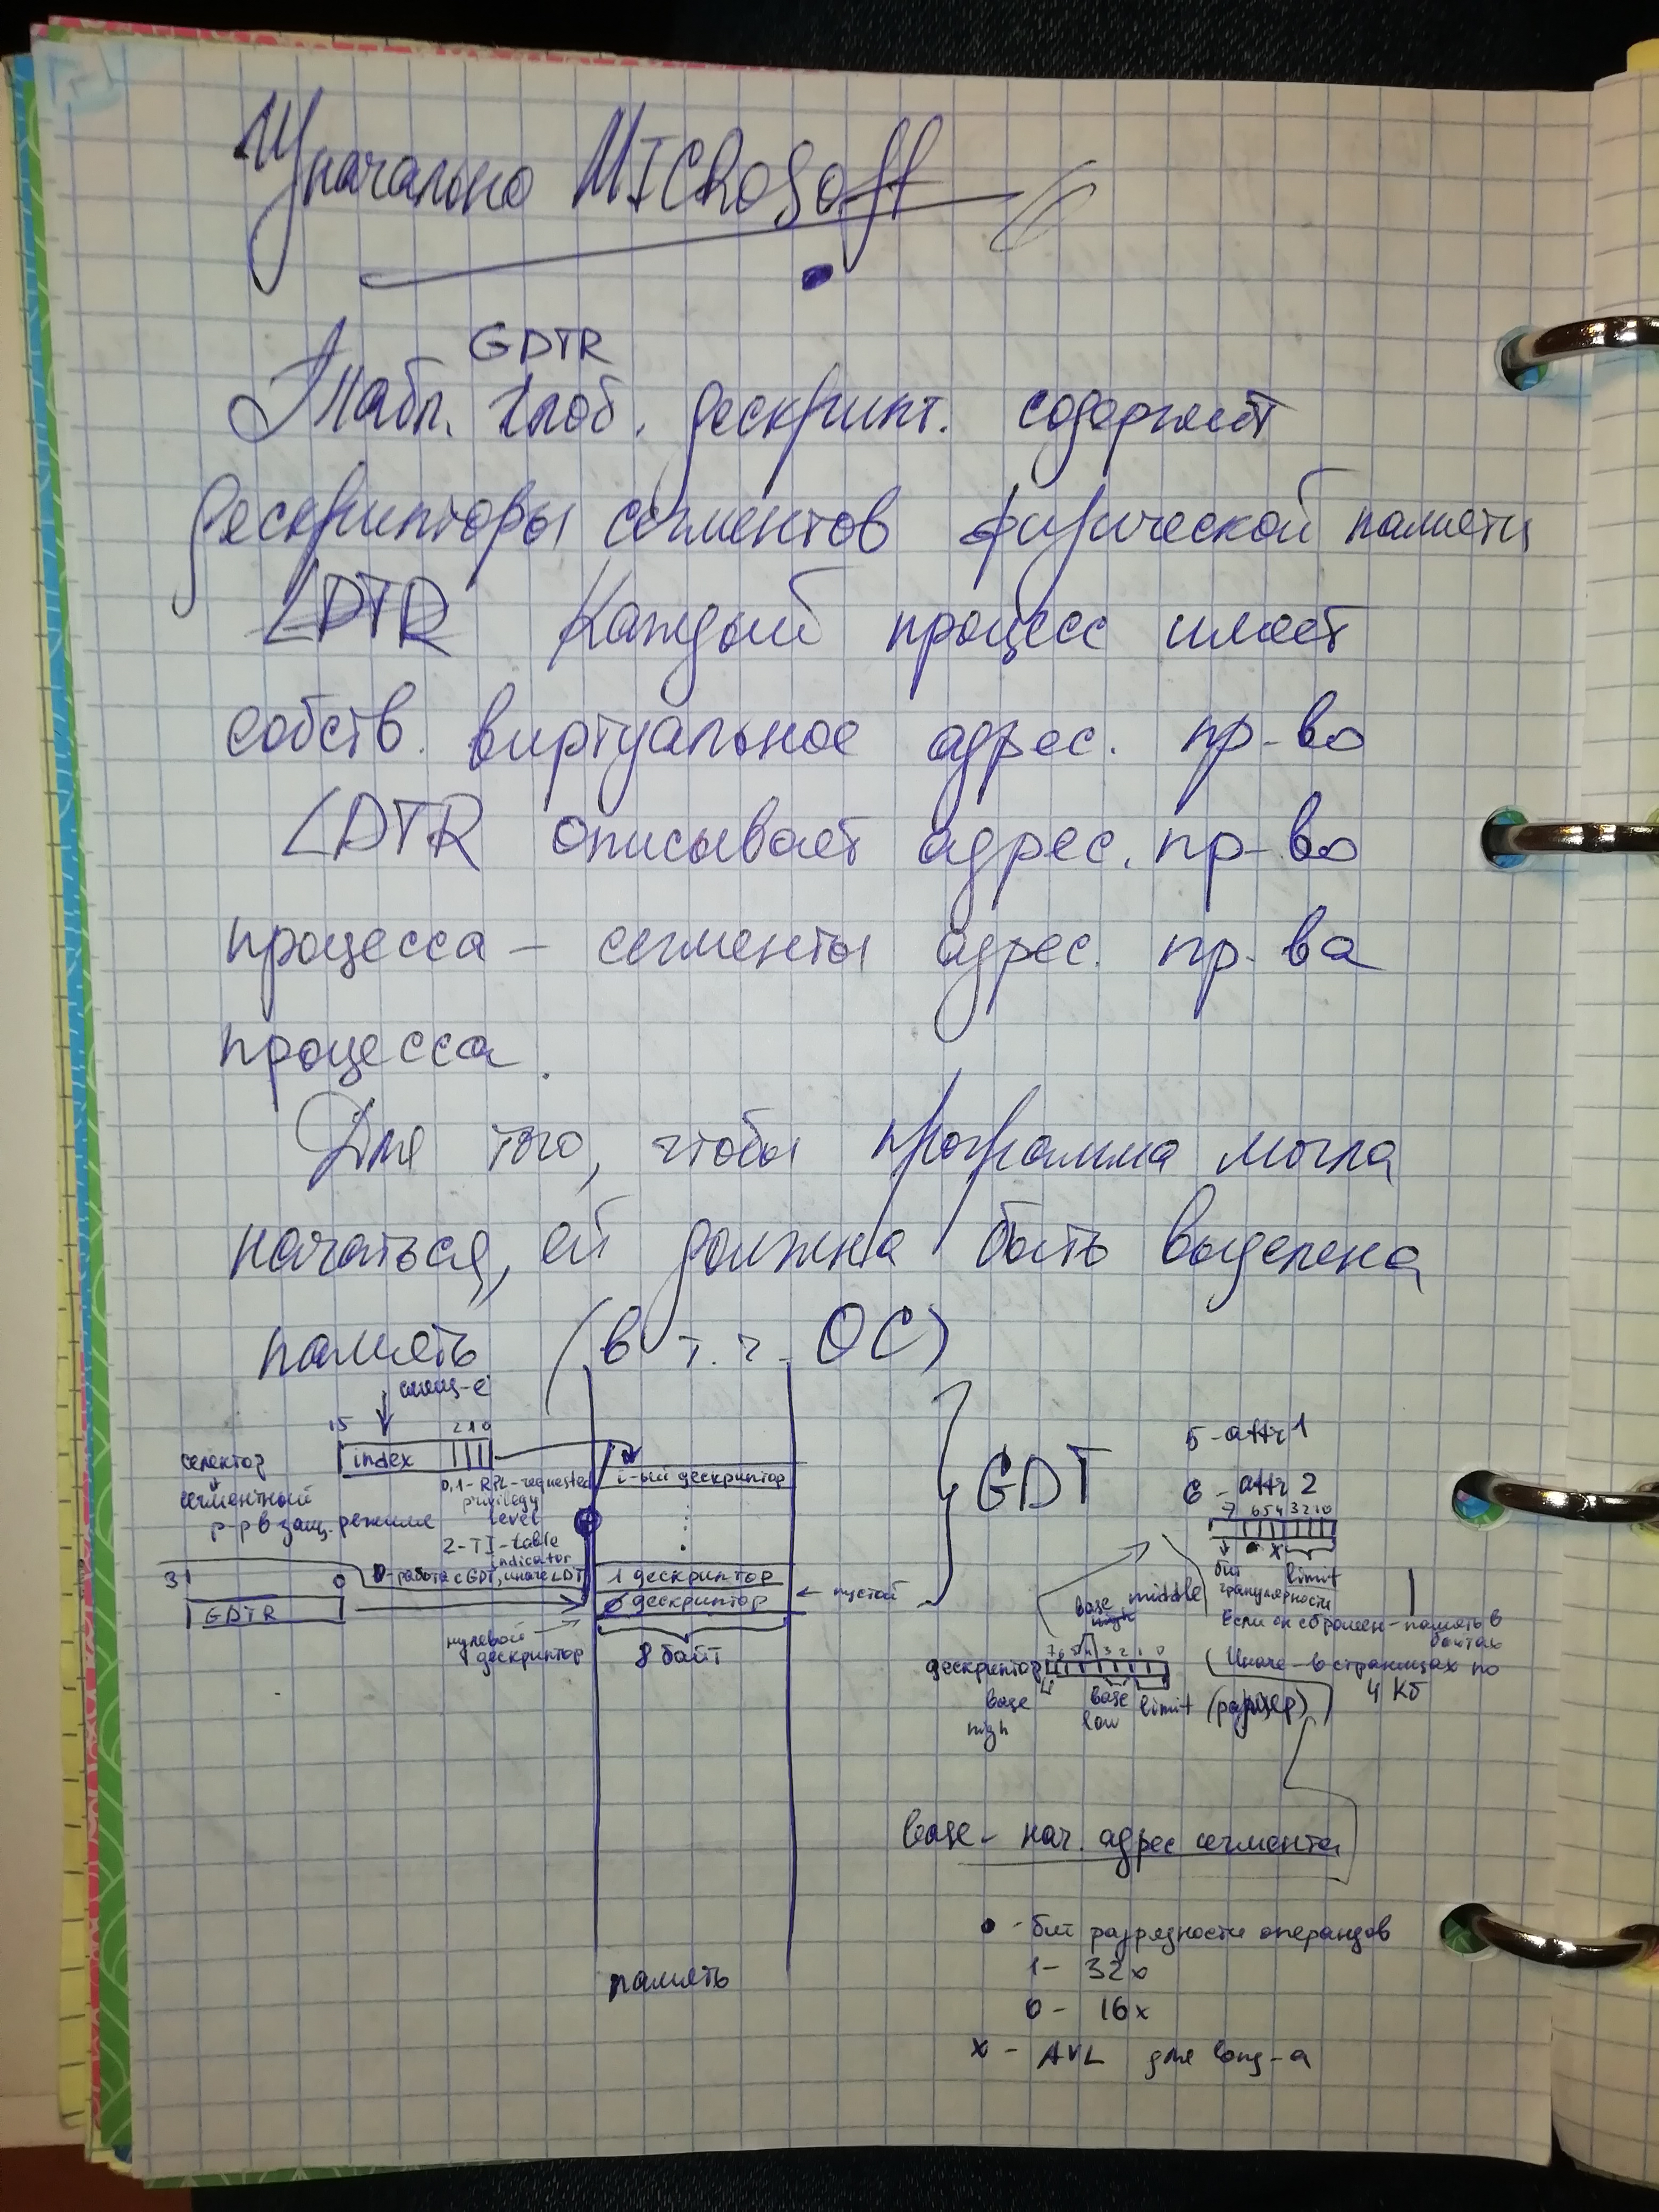 Изначально MICROSOFT
GDTR
Табл. глоб. дескрипт. содержит
дескрипторы сегментов физической памяти
LDTR Каждый процесс имеет
собств. виртуальное адрес. пр-во
LDTR описывает адрес. пр-во
процесса – сегменты адрес. пр-ва
процесса.
Для того, чтобы программа могла
начаться, ей должна быть выделена
память (в т.ч. ОС)
смещ-е
15 2 1 0
index
селектор
сегментный
р-р в защ. режиме
0,1 - RPL - requested
privilegy
level
2 - TI - table
indicator
0 - работа с GDT, иначе LDT
31 0
GDTR
нулевой
дескриптор
i-ый дескриптор
1 дескриптор
0 дескриптор
← пустой
8 байт
память
GDT
5 - attr 1
6 - attr 2
7 6 5 4 3 2 1 0
x
бит
гранулярности
limit
Если он сброшен - память в
байтах
(Иначе - в страницах по
4 Кб
base middle
high
7 6 5 4 3 2 1 0
дескриптор
base
high
base
low
limit (размер)
base - нач. адрес сегмента
• - бит разрядности операндов
1 - 32x
0 - 16x
x - AVL для long-а